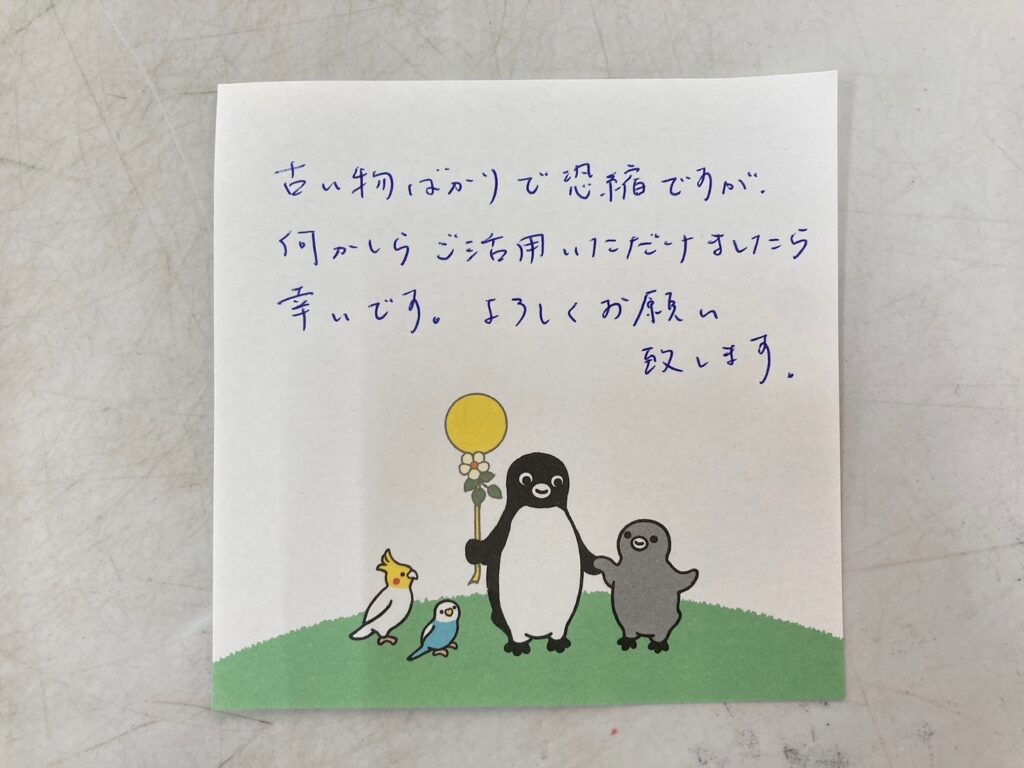 古い物ばかりで恐縮ですが、
何かしらご活用いただけましたら
幸いです。よろしくお願い
致します。